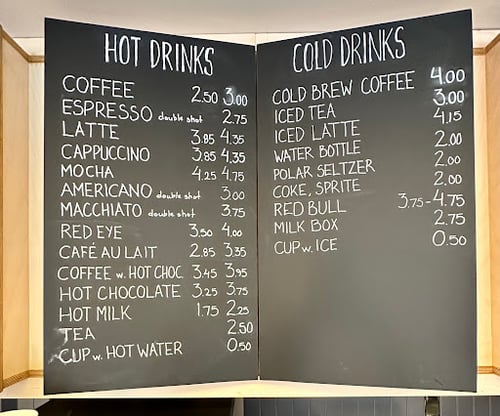 HOT DRINKS
COFFEE 2.50 3.00
ESPRESSO double shot 2.75
LATTE 3.85 4.35
CAPPUCCINO 3.85 4.35
MOCHA 4.25 4.75
AMERICANO double shot 3.00
MACCHIATO double shot 3.75
RED EYE 3.50 4.00
CAFÉ AU LAIT 2.85 3.35
COFFEE w. HOT CHOC 3.45 3.95
HOT CHOCOLATE 3.25 3.75
HOT MILK 1.75 2.25
TEA 2.50
CUP w. HOT WATER 0.50
COLD DRINKS
COLD BREW COFFEE 4.00
ICED TEA 3.00
ICED LATTE 4.15
WATER BOTTLE 2.00
POLAR SELTZER 2.00
COKE, SPRITE 2.00
RED BULL 3.75-4.75
MILK BOX 2.75
CUP w. ICE 0.50